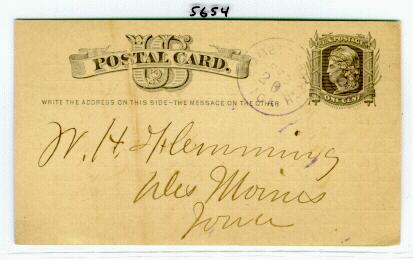 5654
US
POSTAL CARD.
WRITE THE ADDRESS ON THIS SIDE—THE MESSAGE ON THE OTHER
U.S. POSTAGE
ONE CENT
26
W. H. Flemming
Des Moines
Iowa